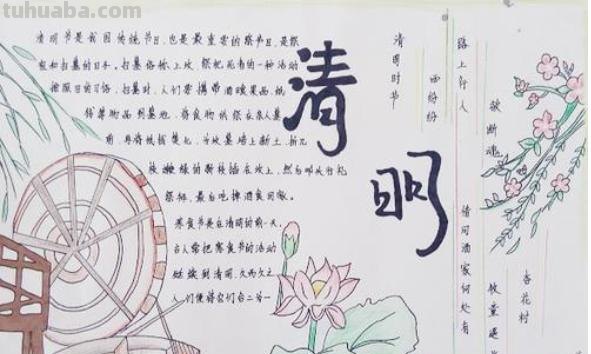 tuhuaba.com
清明节是我国传统节日,也是最重要的祭节日,是祭
祖和扫墓的日子。扫墓俗称上坟,祭祀死者的一种活动
按照旧的习俗,扫墓时,人们要携带酒食果品,纸
钱等物品到墓地,将食物供祭在亲人墓
前,再将纸钱焚化,为坟墓培上新土,折几
枝嫩绿的新枝插在坟上,然后叩头行礼
祭拜,最后吃掉酒食回家。
寒食节是在清明的前一天,
古人常把寒食节的活动
延续到清明,久而久之
人们便将它们合二为一
清明
清明时节
雨纷纷
路上行人
欲断魂
借问酒家何处有
牧童遥
杏花村